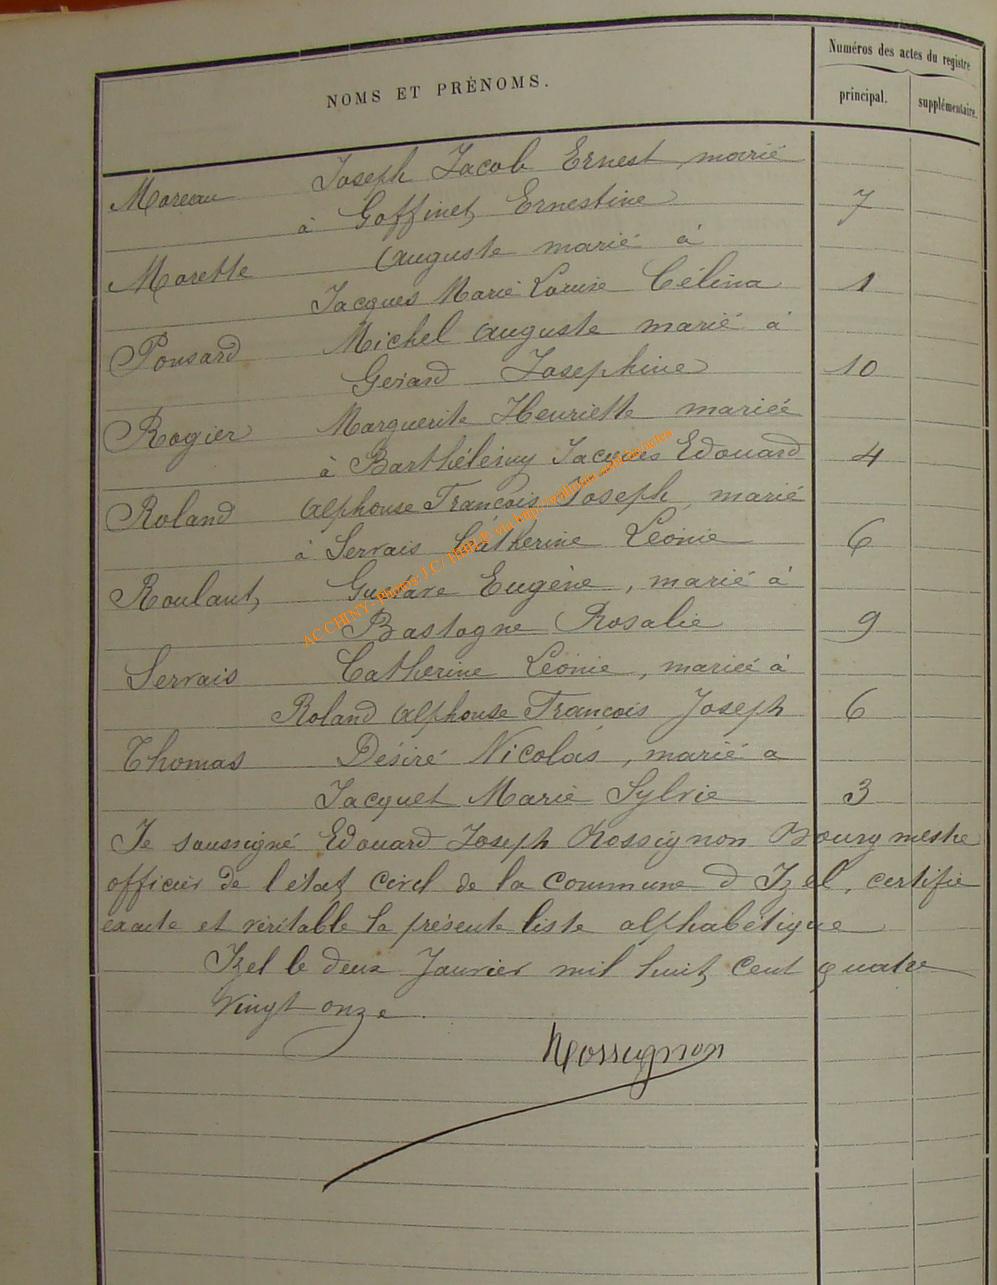 Numéros des actes du registre
NOMS ET PRÉNOMS.
principal. supplémentaire.
Moreau Joseph Jacob Ernest marié
à Goffinet Ernestine 7
Morette Auguste marié à
Jacques Marie Louise Célina 1
Ponsard Michel Auguste marié à
Gerard Josephine 10
Rogier Marguerite Henriette mariée
à Barthélémy Jacques Edouard 4
Roland Alphonse François Joseph, marié
à Servais Catherine Léonie 6
Roulant Gustave Eugène, marié à
Bastogne Rosalie 9
Servais Catherine Léonie, mariée à
Roland Alphonse François Joseph 6
Thomas Désiré Nicolas, marié a
Jacquet Marie Sylvie 3
Je soussigné Edouard Joseph Rossignon Bourgmestre
officier de l'état civil de la commune d Izel, certifie
exacte et véritable la présente liste alphabétique
Izel le deux Janvier mil huit cent quatre
vingt onze.
Rossignon
AC CHINY - Photos J.C/